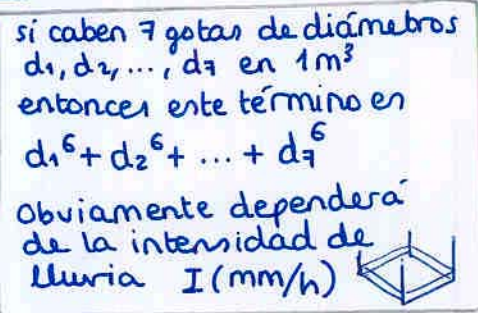 si caben 7 gotas de diámetros
d₁, d₂, ..., d₇ en 1 m³
entonces este término es
d₁⁶ + d₂⁶ + ... + d₇⁶
Obviamente dependerá
de la intensidad de
lluvia I (mm/h)